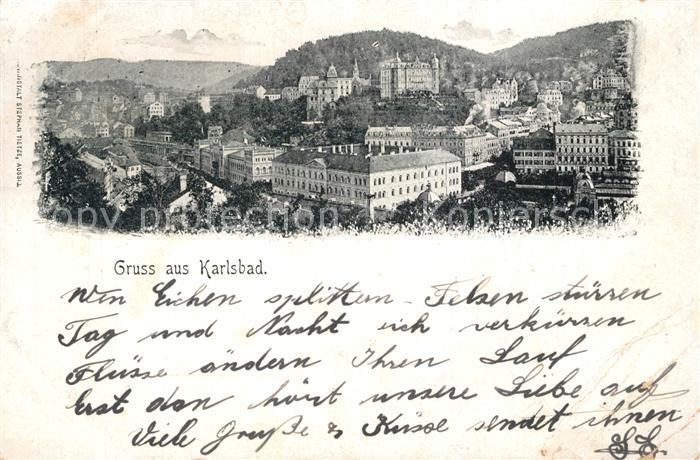 KUNSTANSTALT STEPHAN TIETZE, AUSSIG.
Gruss aus Karlsbad.
Wen Eichen splittern - Felsen stürren
Tag und Nacht sich verkürzen
Flüsse ändern Ihren Lauf
Erst dan hört unsere Liebe auf
Viele Große & Küsse sendet ihnen